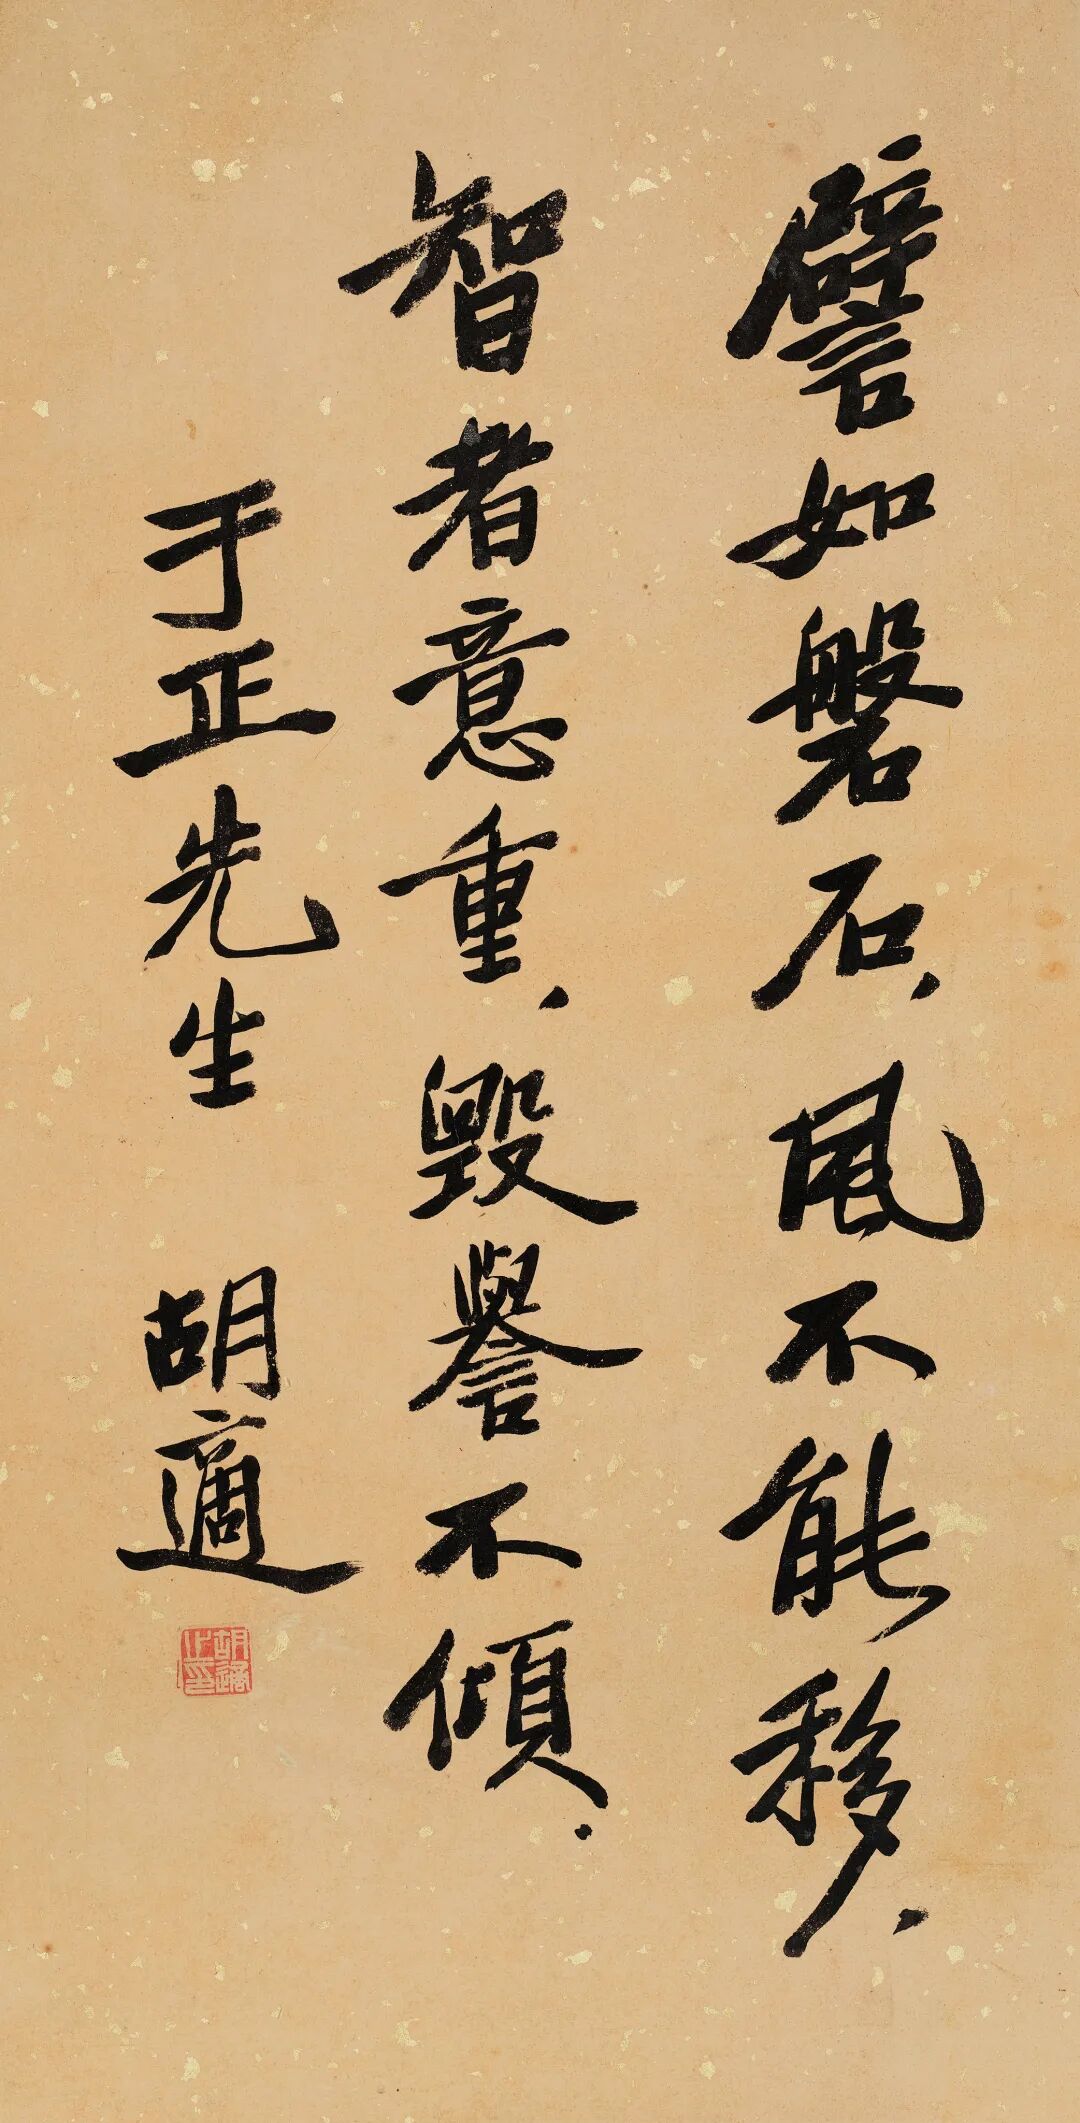 譬如磐石、風不能移、
智者意重、毀譽不傾.
于正先生 胡適
胡適之印